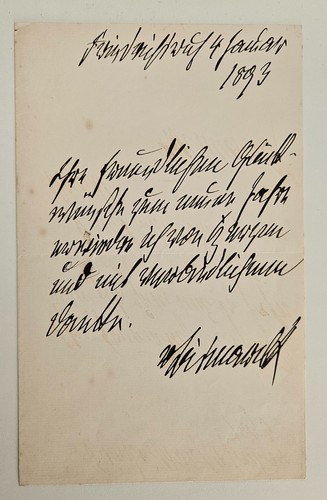 Friedrichsruh 4 Januar
1893
Ihre freundlichen Glück-
wünsche zum neuen Jahre
erwiedre ich von Herzen
und mit verbindlichem
Danke.
vBismarck